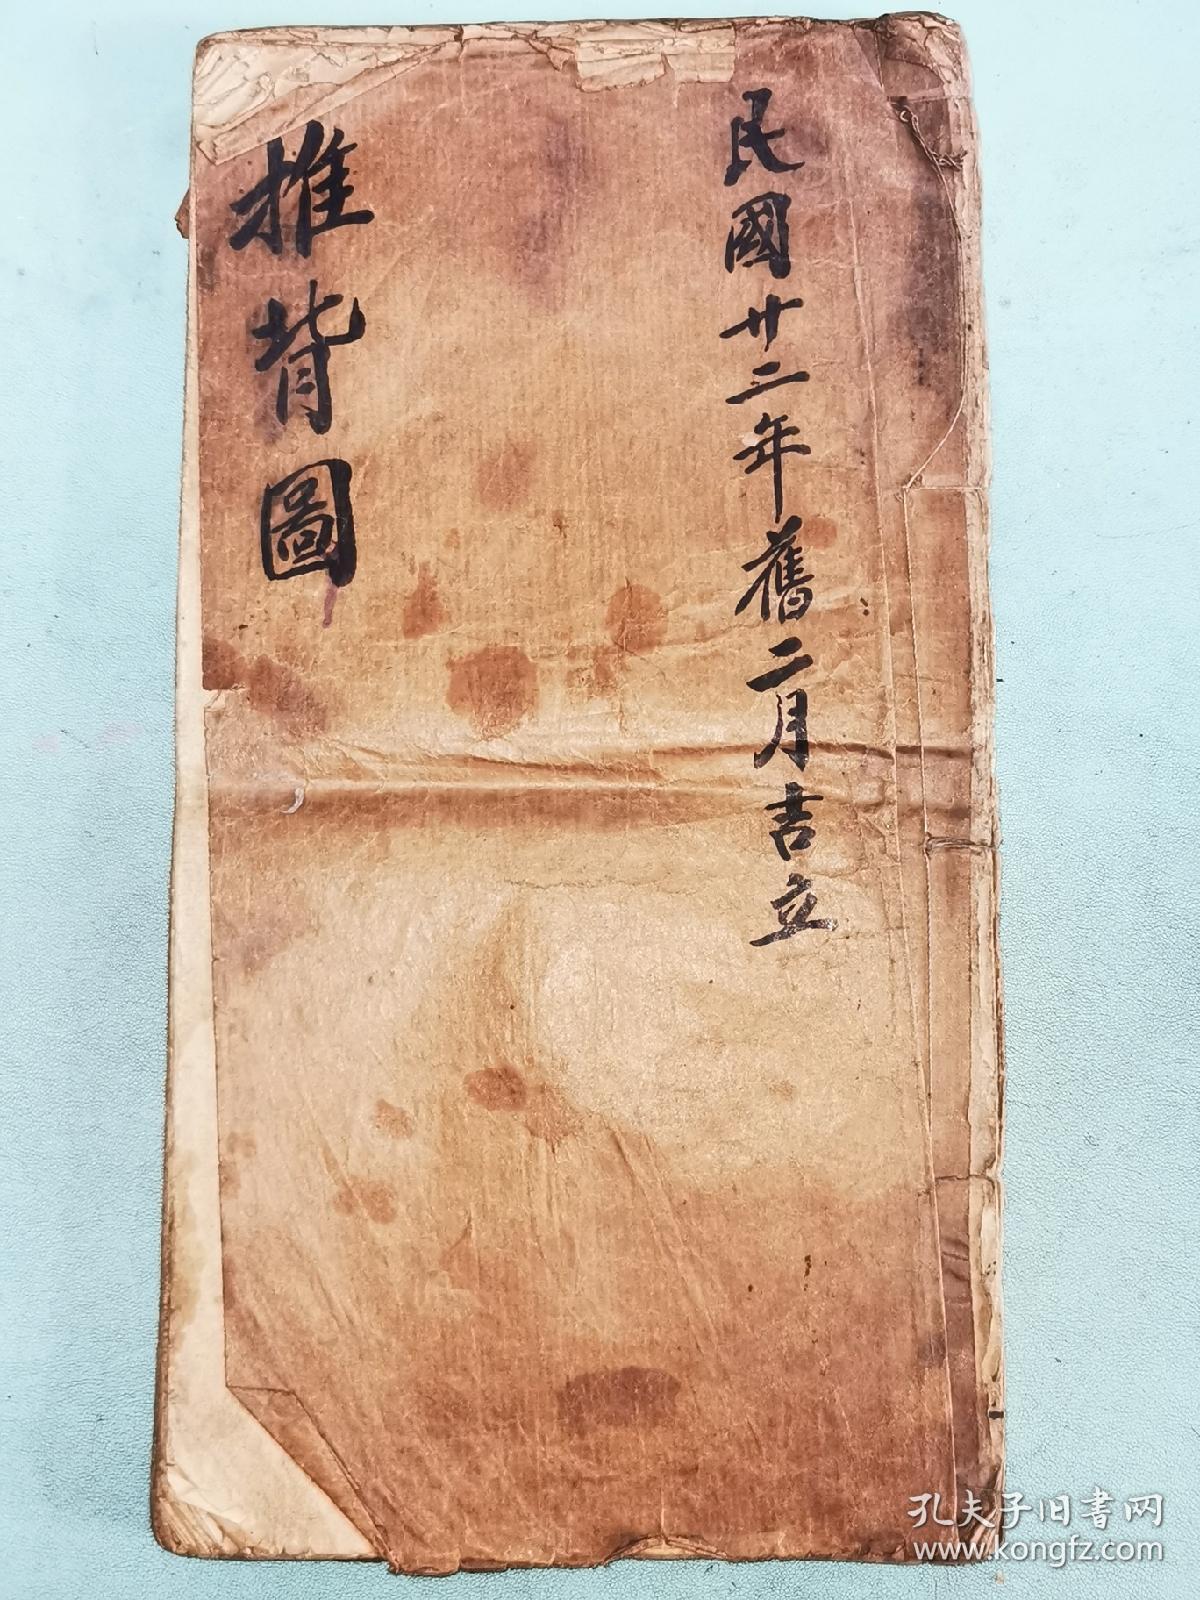 民國廿二年舊二月吉立
推背圖
孔夫子旧書网
www.kongfz.com